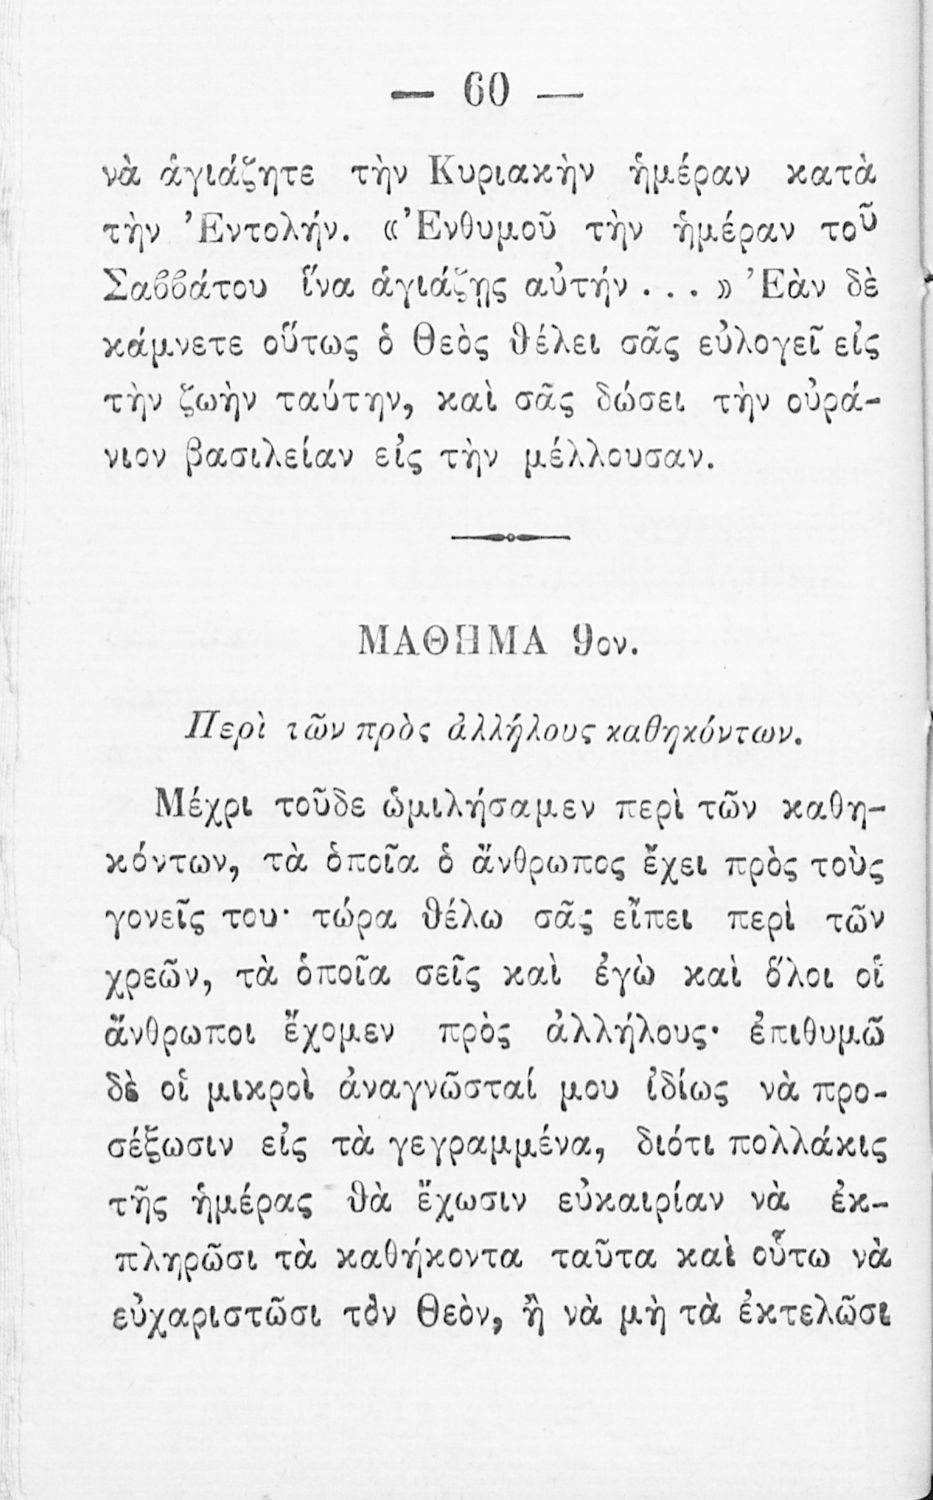 — 60 —
νὰ ἁγιάζητε τὴν Κυριακὴν ἡμέραν κατὰ
τὴν Ἐντολήν. «Ἐνθυμοῦ τὴν ἡμέραν τοῦ
Σαββάτου ἵνα ἁγιάζῃς αὐτήν . . . » Ἐὰν δὲ
κάμνετε οὕτως ὁ Θεὸς θέλει σᾶς εὐλογεῖ εἰς
τὴν ζωὴν ταύτην, καὶ σᾶς δώσει τὴν οὐρά-
νιον βασιλείαν εἰς τὴν μέλλουσαν.
ΜΑΘΗΜΑ 9ον.
Περὶ τῶν πρὸς ἀλλήλους καθηκόντων.
Μέχρι τοῦδε ὡμιλήσαμεν περὶ τῶν καθη-
κόντων, τὰ ὁποῖα ὁ ἄνθρωπος ἔχει πρὸς τοὺς
γονεῖς του· τώρα θέλω σᾶς εἴπει περὶ τῶν
χρεῶν, τὰ ὁποῖα σεῖς καὶ ἐγὼ καὶ ὅλοι οἱ
ἄνθρωποι ἔχομεν πρὸς ἀλλήλους· ἐπιθυμῶ
δὲ οἱ μικροὶ ἀναγνῶσταί μου ἰδίως νὰ προ-
σέξωσιν εἰς τὰ γεγραμμένα, διότι πολλάκις
τῆς ἡμέρας θὰ ἔχωσιν εὐκαιρίαν νὰ ἐκ-
πληρῶσι τὰ καθήκοντα ταῦτα καὶ οὕτω νὰ
εὐχαριστῶσι τὸν Θεὸν, ἢ νὰ μὴ τὰ ἐκτελῶσι